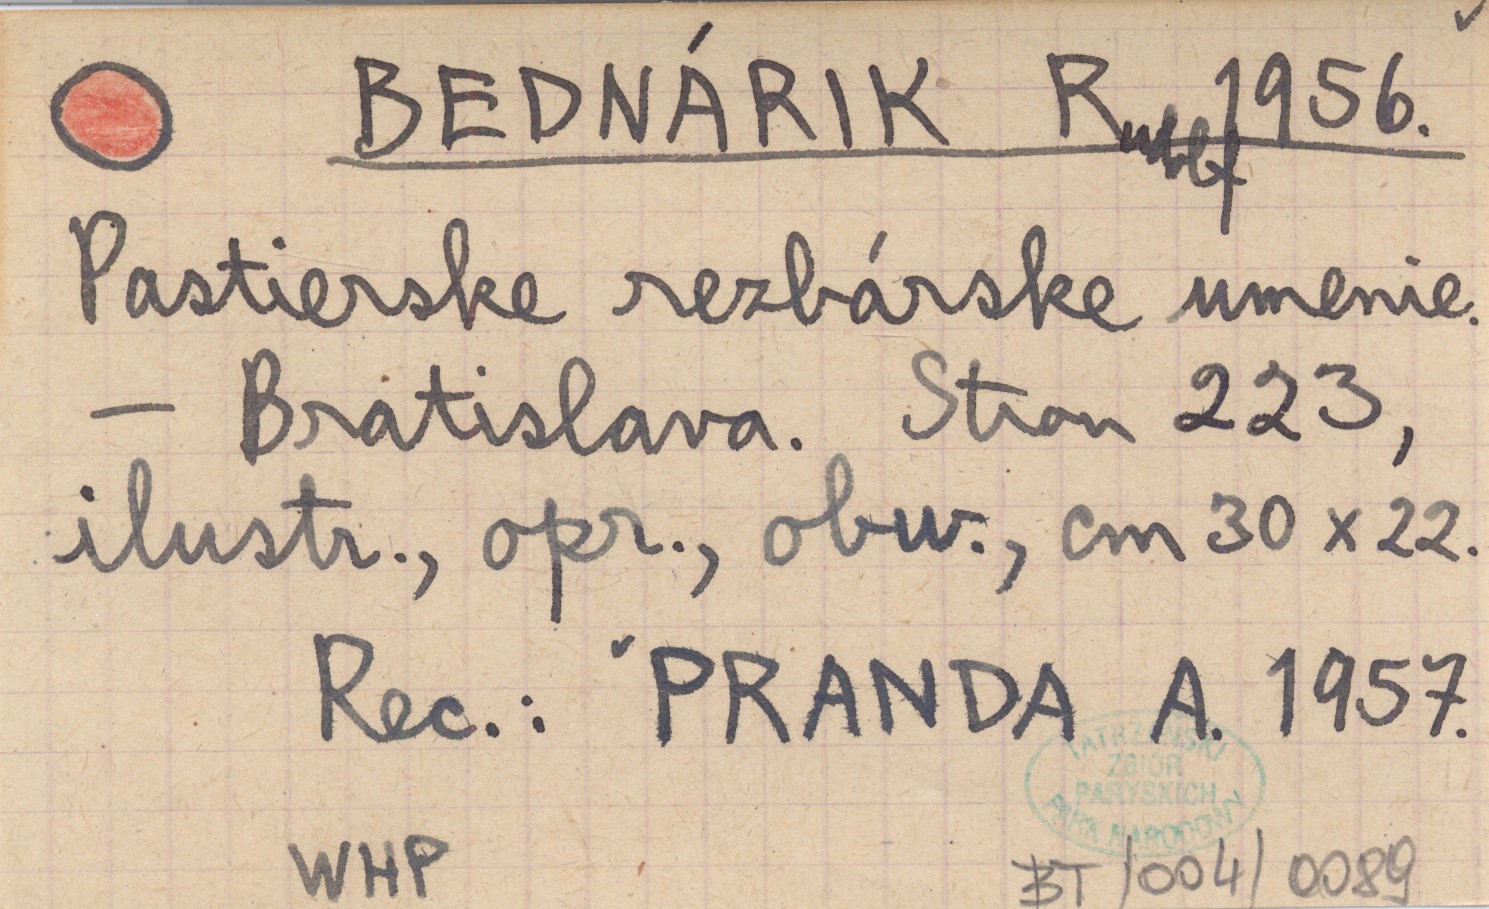 BEDNÁRIK Rudolf 1956.
Pastierske rezbárske umenie.
— Bratislava. Stron 223,
ilustr., opr., obw., cm 30 x 22.
Rec.: PRANDA A. 1957.
TATRZAŃSKI
ZBIÓR
PARYSKICH
PARK NARODOWY
WHP
BT/004/0089